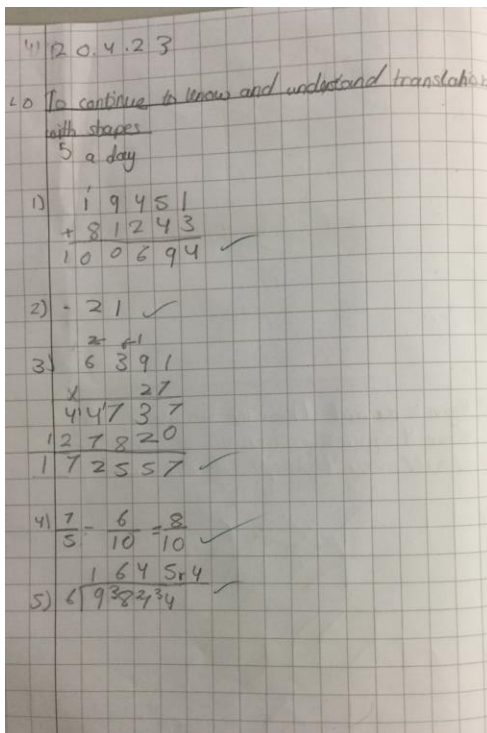 20.4.23
LO To continue to know and understand translation
with shapes
5 a day
1) 19451
+ 81243
100694 ✓
2) -21 ✓
3) 6391
x 27
44737
127820
172557 ✓
4) 7/5 - 6/10 = 8/10 ✓
1645r4
5) 6 9³8²7³4 ✓